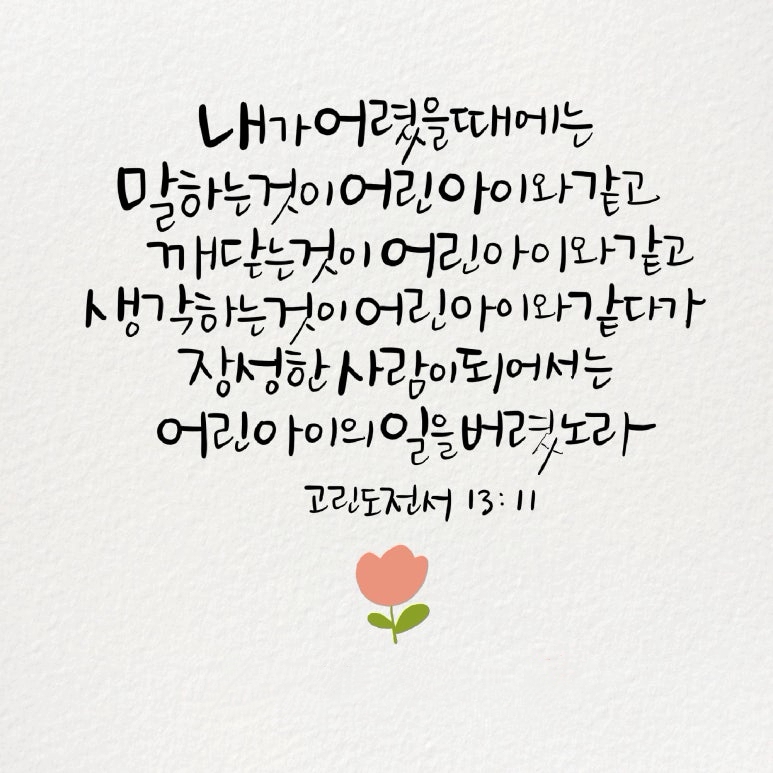 내가 어렸을 때에는
말하는 것이 어린 아이와 같고
깨닫는 것이 어린 아이와 같고
생각하는 것이 어린 아이와 같다가
장성한 사람이 되어서는
어린 아이의 일을 버렸노라
고린도전서 13:11